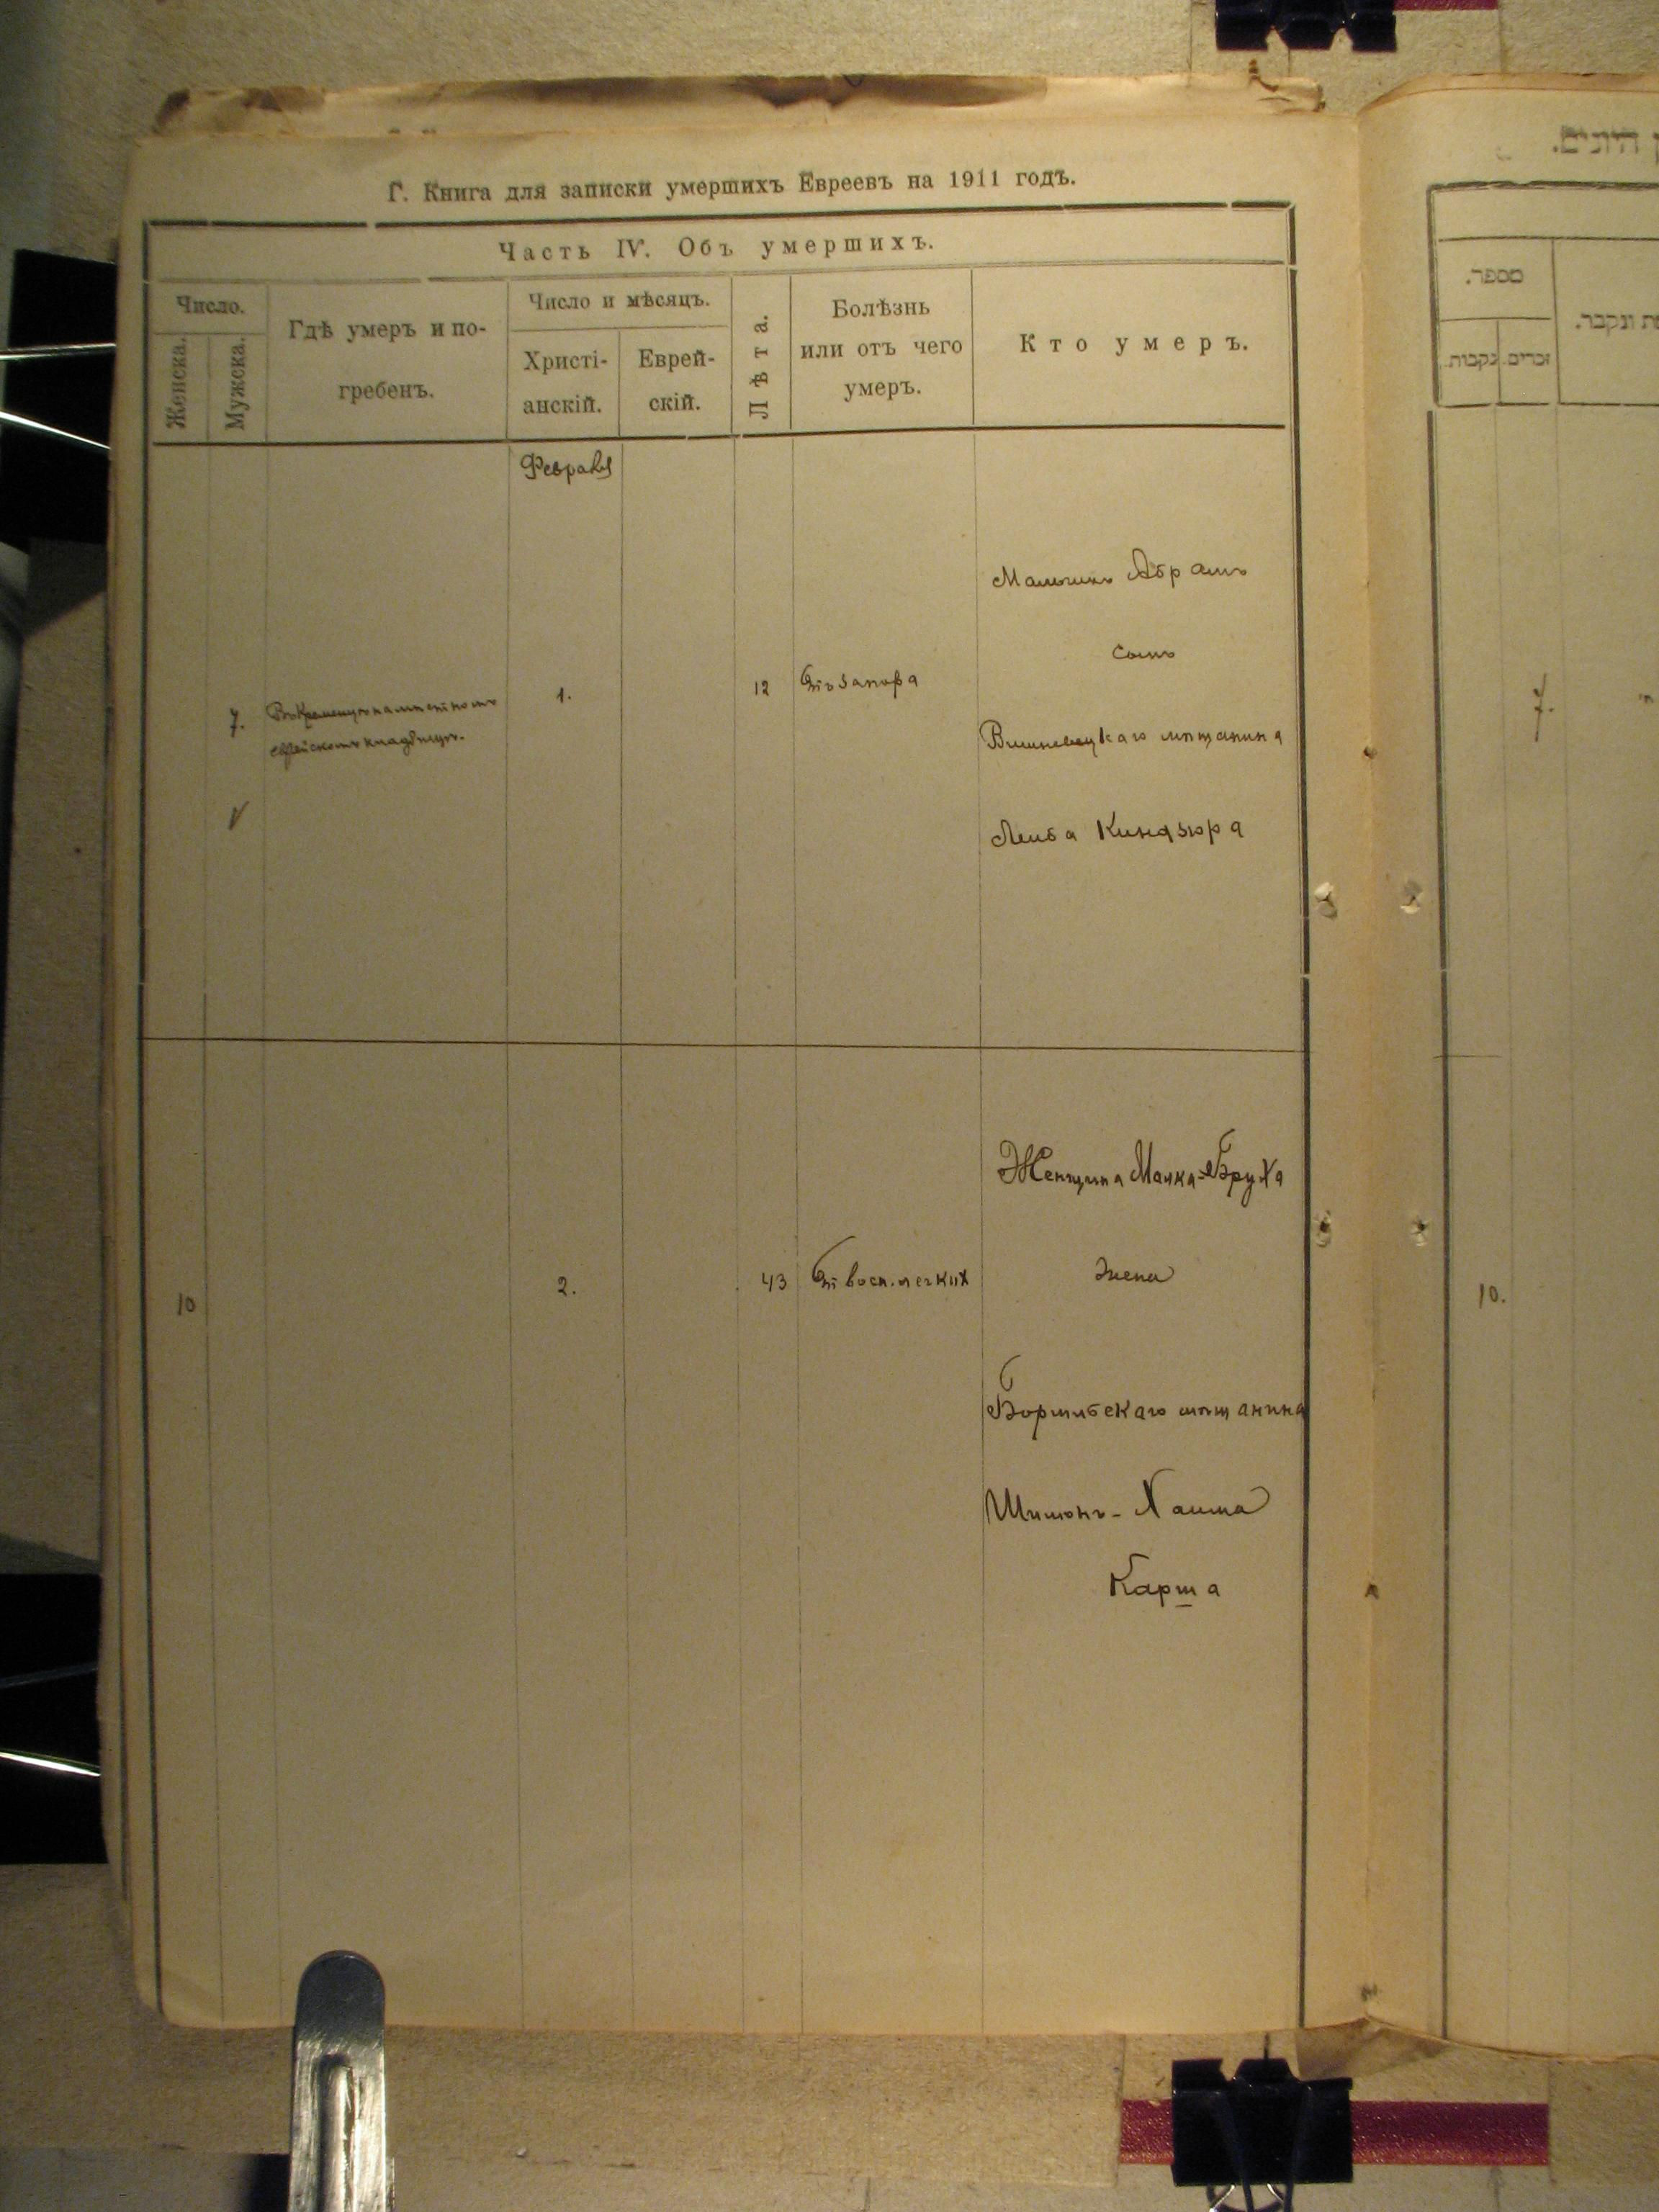 Г. Книга для записки умершихъ Евреевъ на 1911 годъ.
Часть IV. Объ умершихъ.
Число.
Женска.
Мужска.
Гдѣ умеръ и по-
гребенъ.
Число и мѣсяцъ.
Христі-
анскій.
Еврей-
скій.
Лѣта.
Болѣзнь
или отъ чего
умеръ.
Кто умеръ.
Февраля
7.
Въ Кременцѣ на мѣстномъ
еврейскомъ кладбищѣ.
1.
12
Отъ запора
Мальчикъ Абрамъ
сынъ
Вишневецкаго мѣщанина
Лейба Киндзюра
10
2.
43
От восп. легких
Женщина Малка-Бруха
жена
мѣщанина
Шимонъ-Хаима
Карша
מספר.
נקבות.
זכרים.
ונקבר.
7.
10.